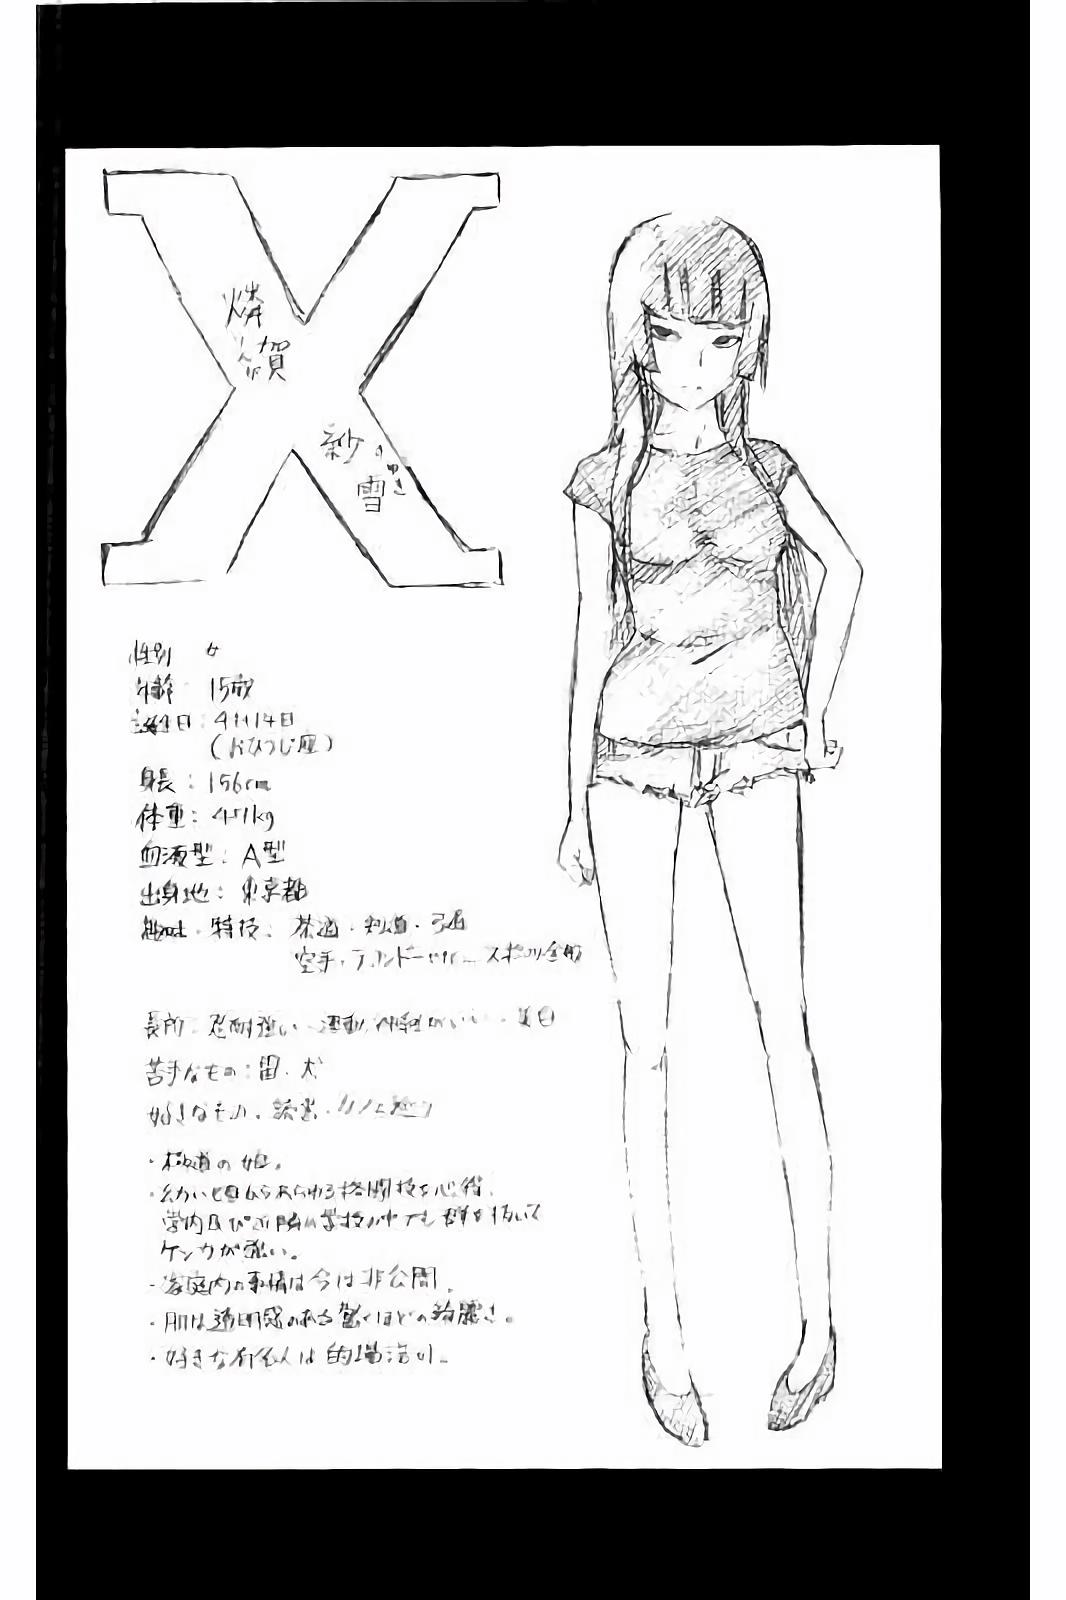 X
燐
賀
紗の
雪
ゆき
性別 女
年齢 15歳
誕生日：4月14日
（おひつじ座）
身長：156cm
体重：45kg
血液型：A型
出身地：東京都
趣味・特技：茶道・剣道・弓道
空手・テコンドー
長所：忍耐強い・運動神経がいい・美白
苦手なもの：雷・犬
好きなもの・読書・カフェ巡り
・極道の娘。
・幼い頃からあらゆる格闘技を心得、
学内及び近隣の学校の中でも群を抜いて
ケンカが強い。
・家庭内の事情は今は非公開。
・肌は透明感のある驚くほどの綺麗さ。
・好きな有名人は的場浩司。